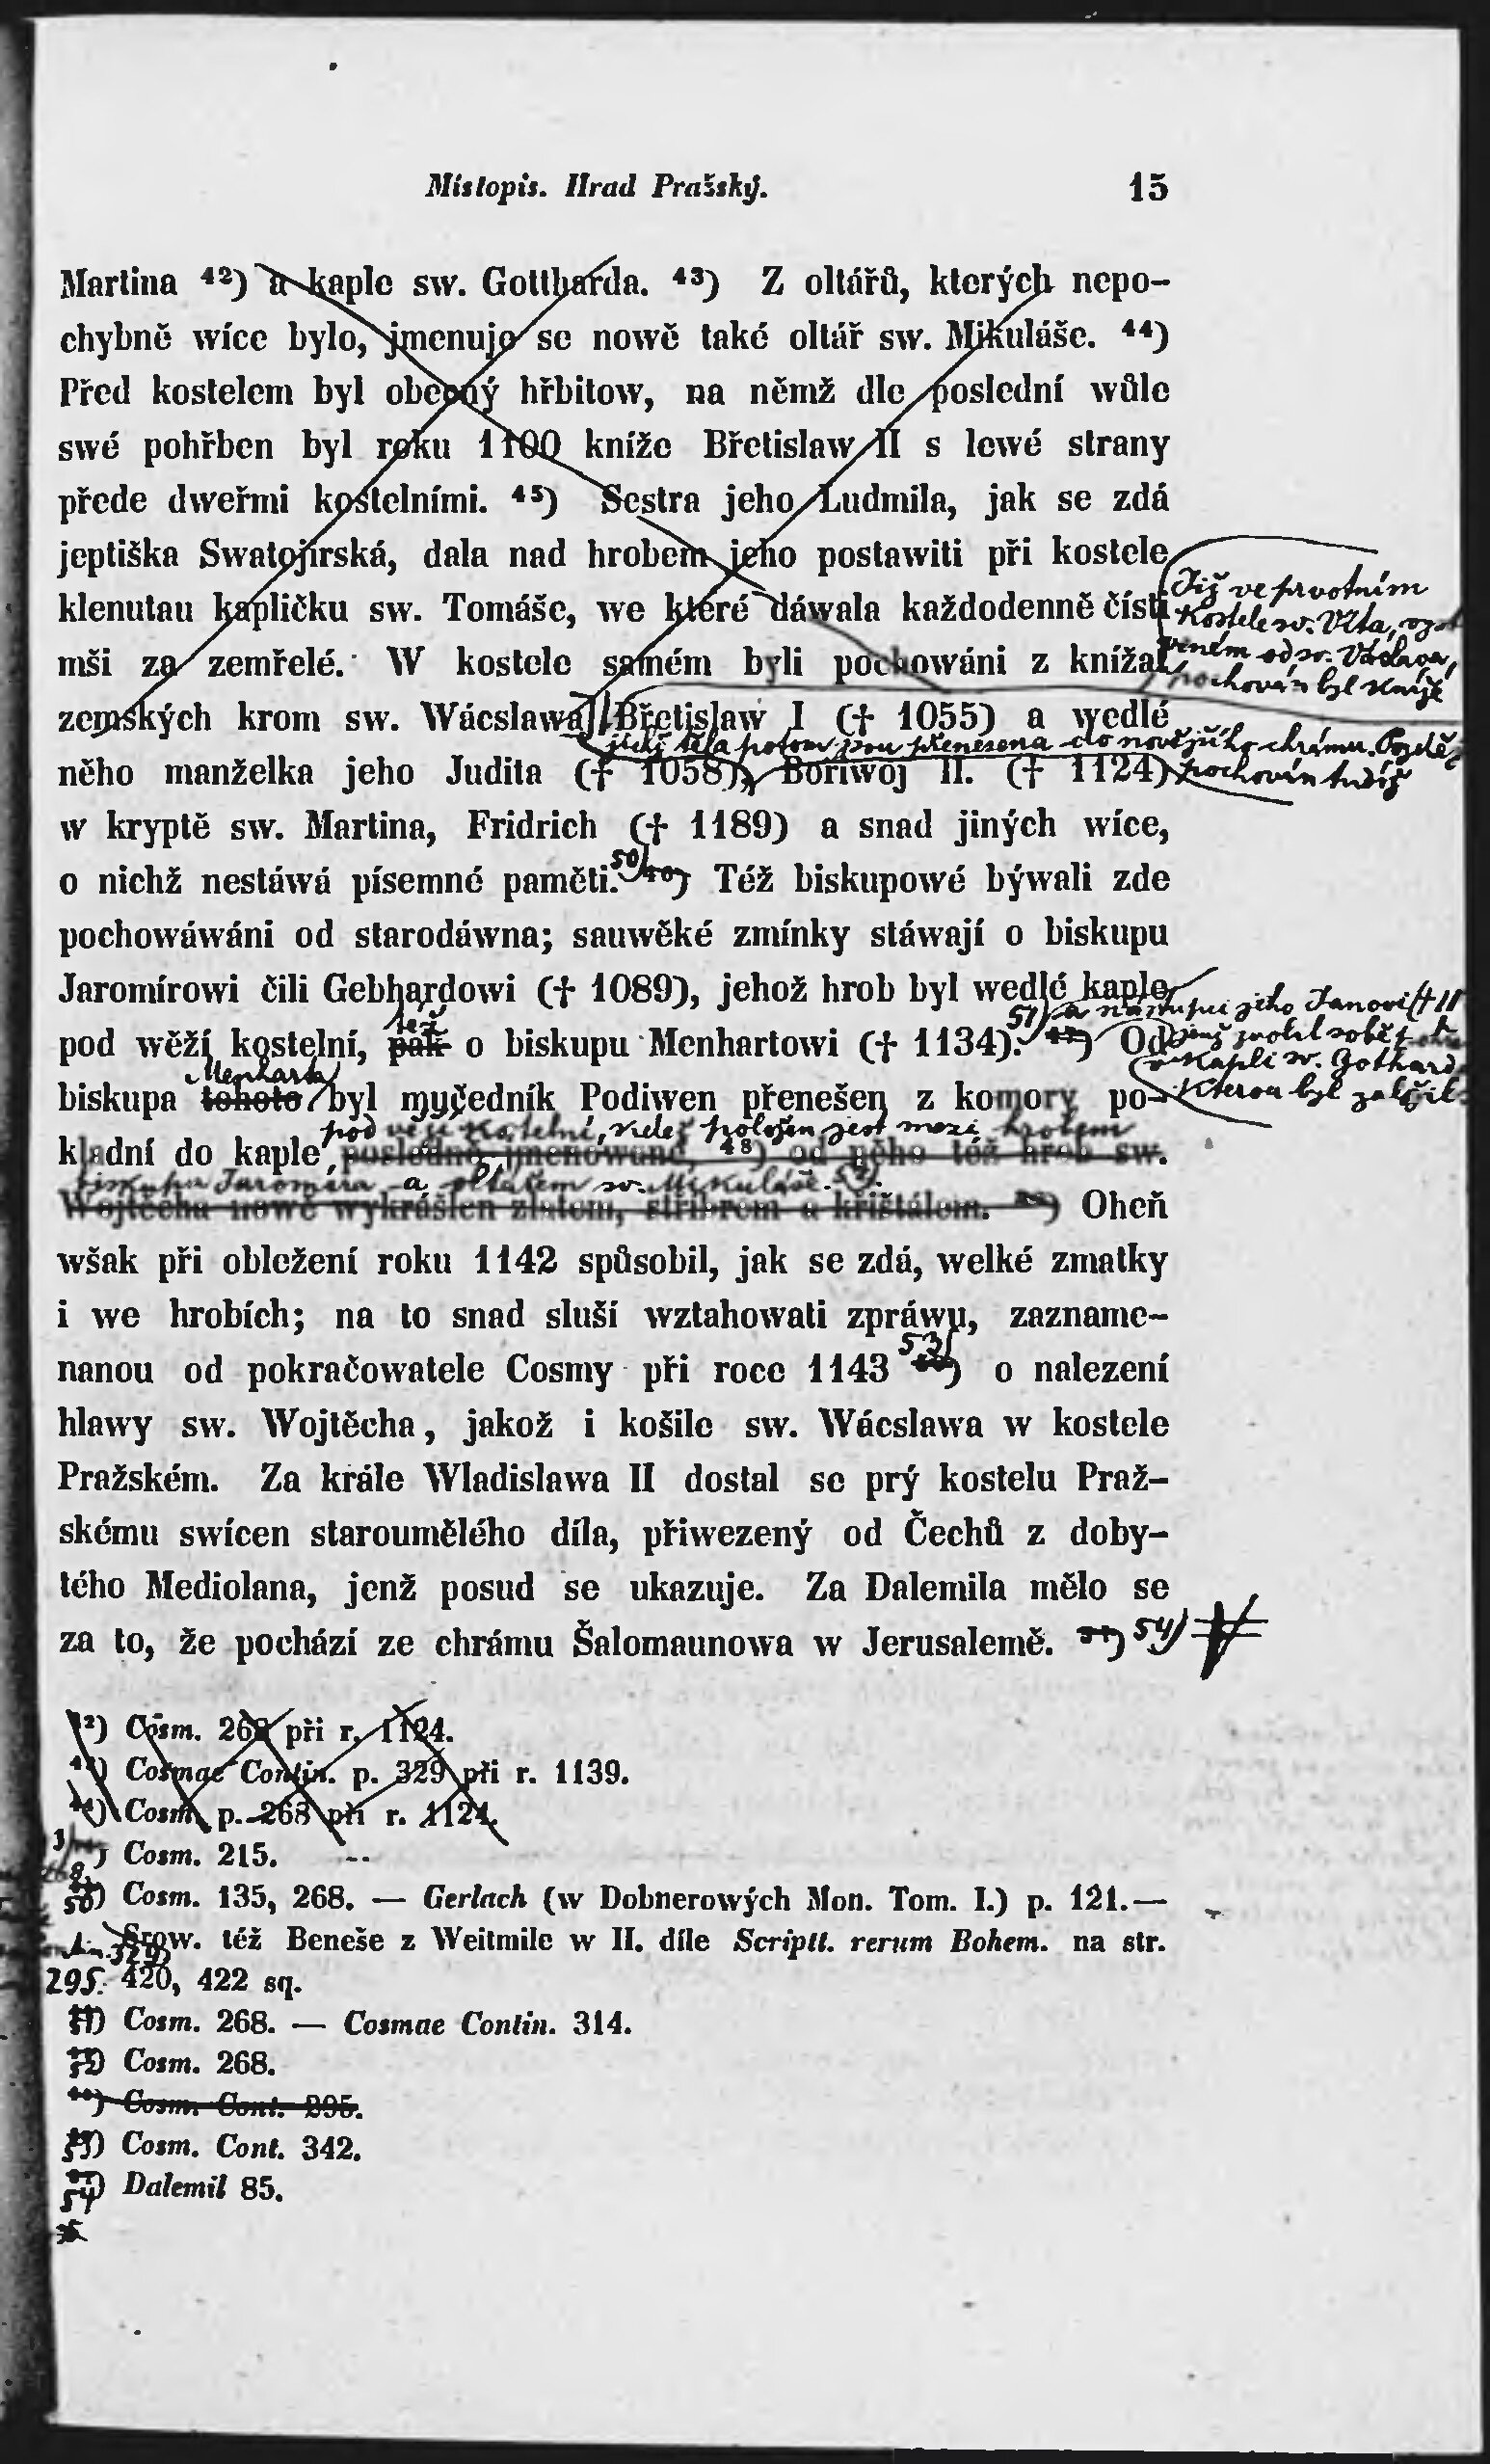 Místopis. Hrad Pražský. 15
Martina ⁴²) a kaple sw. Gottharda. ⁴³) Z oltářů, kterých nepo-
chybně wíce bylo, jmenuje se nowě také oltář sw. Mikuláše. ⁴⁴)
Před kostelem byl obecný hřbitow, na němž dle poslední wůle
swé pohřben byl roku 1100 kníže Břetislaw II s lewé strany
přede dweřmi kostelními. ⁴⁵) Sestra jeho Ludmila, jak se zdá
jeptiška Swatojirská, dala nad hrobem jeho postawiti při kostele
klenutau kapličku sw. Tomáše, we které dáwala každodenně čísti
mši za zemřelé. W kostele samém byli pochowáni z knížat
Již ve prvotním
kostele sv. Víta,
od sv. Václava,
pochován byl kníže
zemských krom sw. Wácslawa Břetislaw I († 1055) a wedlé
jichž těla potom jsou přenesena do novějšího chrámu. Pozděj
něho manželka jeho Judita († 1058), Bořiwoj II. († 1124)
pochován tudíž
w kryptě sw. Martina, Fridrich († 1189) a snad jiných wíce,
o nichž nestáwá písemné paměti. 50)
Též biskupowé býwali zde
pochowáwáni od starodáwna; sauwěké zmínky stáwají o biskupu
Jaromírowi čili Gebhardowi († 1089), jehož hrob byl wedlé kaple
a nástupci jeho Janovi
též
pod wěží kostelní, pak o biskupu Menhartowi († 1134). 51) Od
jenž zvolil sobě
v kapli sv. Gothard
kterou byl založil
Menharta
biskupa tohoto byl mučedník Podiwen přenešen z komory po-
pod věží kostelní, kdež položen jest mezi hrobem
kladní do kaple, posledně jmenowané, ⁴⁸) od něho též hrob sw.
biskupa Jaromíra a oltářem sv. Mikuláše. 52)
Wojtěcha nowě wykrášlen zlatem, stříbrem a křišťálem. Oheň
wšak při obležení roku 1142 spůsobil, jak se zdá, welké zmatky
i we hrobích; na to snad sluší wztahowati zpráwu, zazname-
nanou od pokračowatele Cosmy při roce 1143 53) o nalezení
hlawy sw. Wojtěcha, jakož i košile sw. Wácslawa w kostele
Pražském. Za krále Wladislawa II dostal se prý kostelu Praž-
skému swícen staroumělého díla, přiwezený od Čechů z doby-
tého Mediolana, jenž posud se ukazuje. Za Dalemila mělo se
za to, že pochází ze chrámu Šalomaunowa w Jerusalemě. 54)
⁴²) Cosm. 268 při r. 1124.
⁴³) Cosmae Contin. p. 329 při r. 1139.
⁴⁴) Cosm. p. 268 při r. 1124.
Cosm. 215.
50) Cosm. 135, 268. — Gerlach (w Dobnerowých Mon. Tom. I.) p. 121.—
Srow. též Beneše z Weitmile w II. díle Scriptt. rerum Bohem. na str.
329,
295. 420, 422 sq.
Cosm. 268. — Cosmae Contin. 314.
Cosm. 268.
Cosm. Cont. 295.
Cosm. Cont. 342.
54) Dalemil 85.